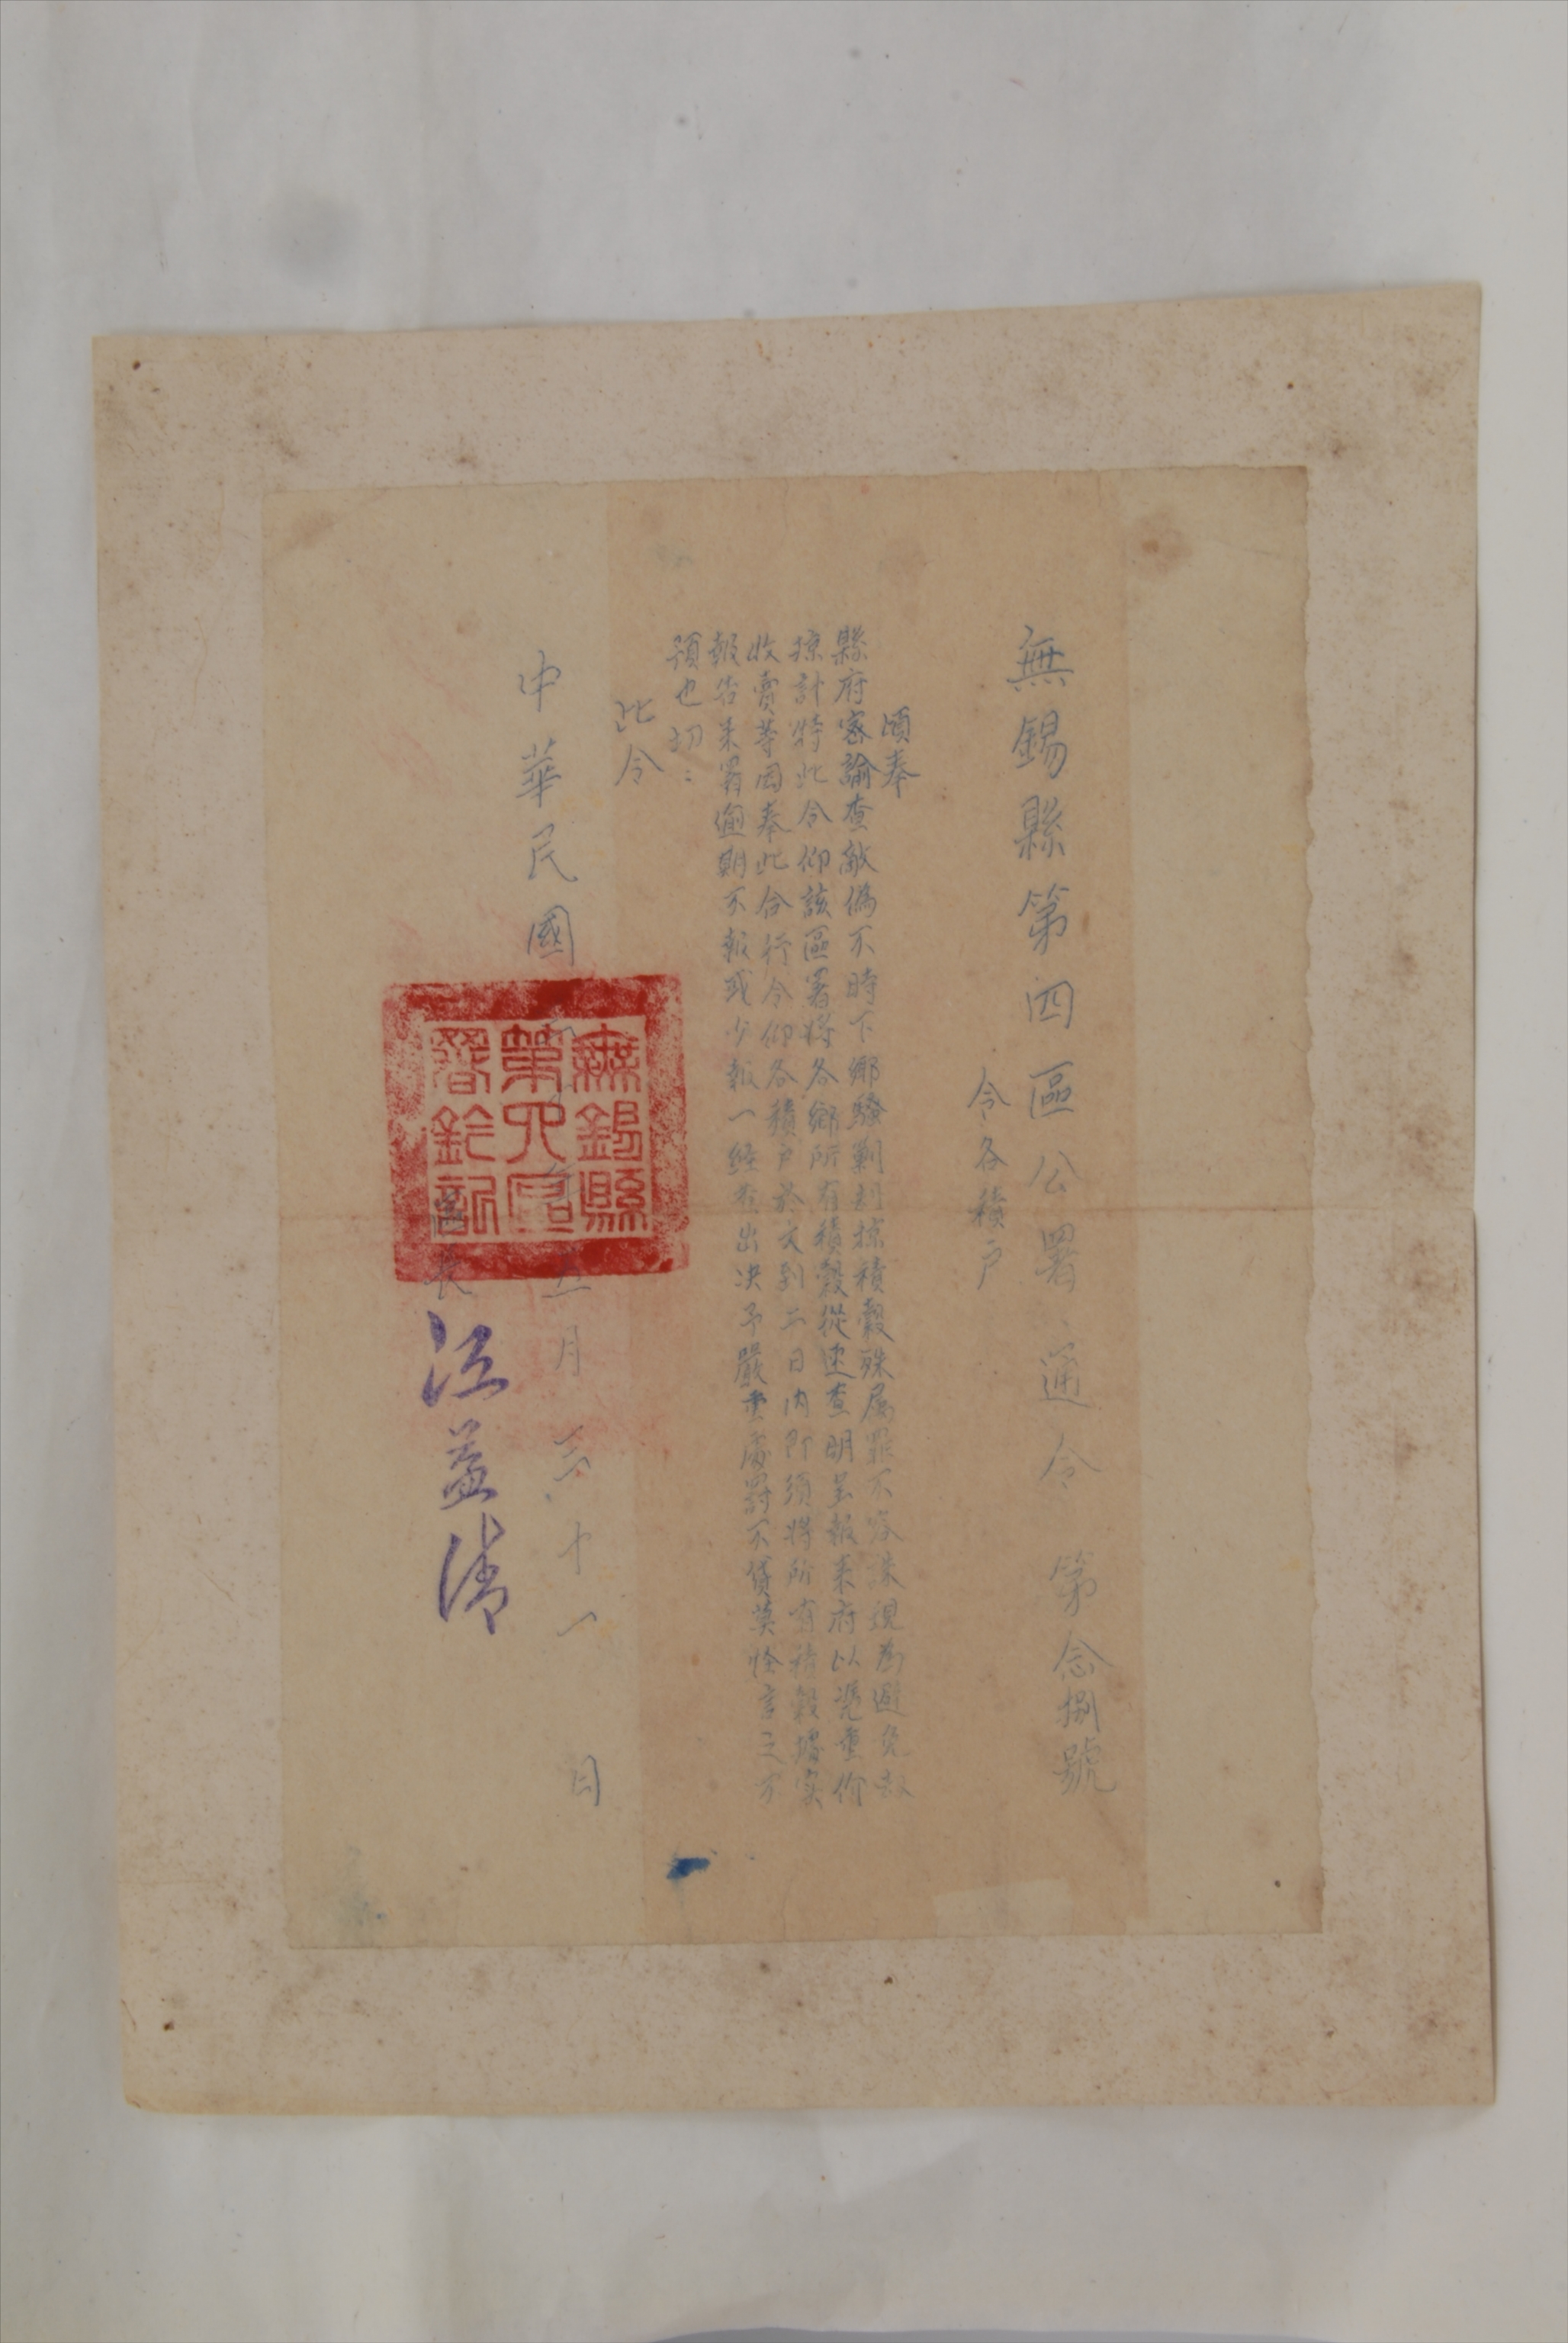 無錫縣第四區公署通令 第念捌號
令各積户
頃奉
縣府密諭查敵偽不時下鄉騷剿刦掠積穀殊属罪不容誅現爲避免敵
掠計特此令仰該區署將各鄉所有積穀從速查明呈報来府以凴重价
收賣等因奉此合行令仰各積户於文到二日内即須將所有積穀據实
報告来署逾期不報或少報一經查出决予嚴重處罸不貸莫怪言之不
預也切：
此令
中華民國 年五月三十一日
區長 江益清
無錫縣
第四區
署鈐記